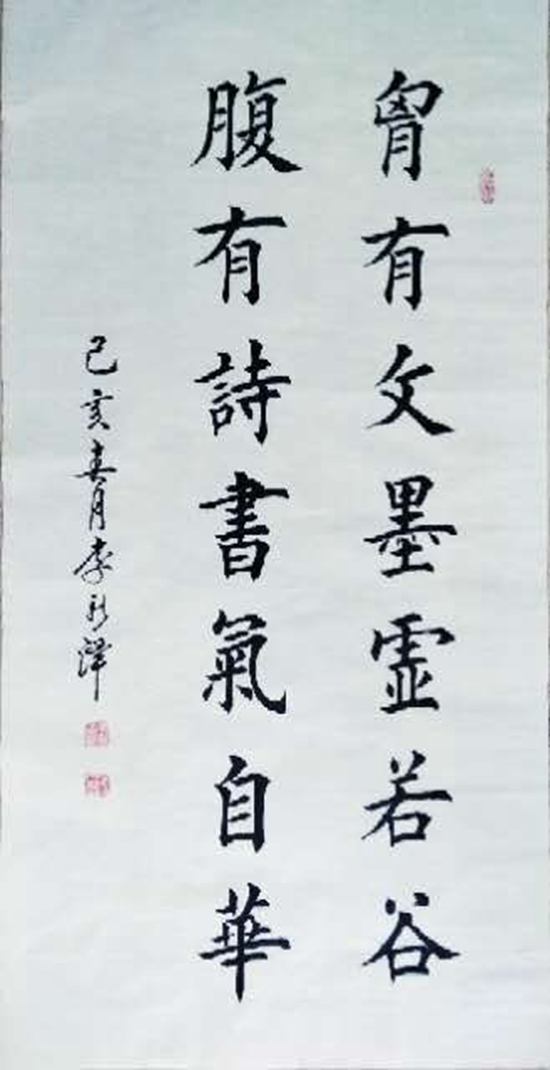 胷有文墨虚若谷
腹有詩書氣自華
己亥春月李新泽